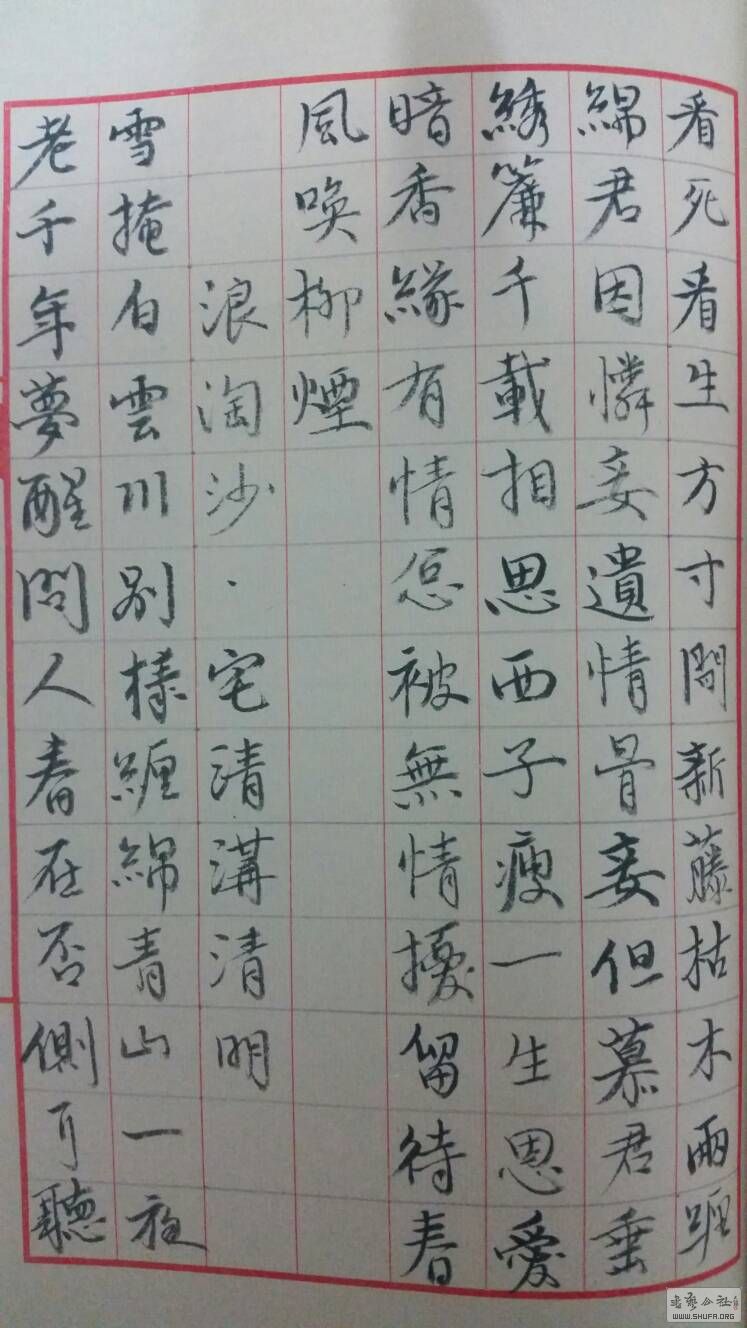 看死看生方寸間新藤枯木兩纒
綿君因憐妾遺情骨妾但慕君垂
綉簾千載相思西子瘦一生恩愛
暗香緣有情怎被無情擾留待春
風喚柳煙
浪淘沙·宅清溝清明
雪掩白雲川別樣纏綿青山一夜
老千年夢醒問人春在否側耳聽
WWW.SHUFA.ORG